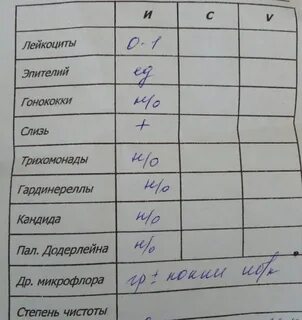 И C V
Лейкоциты 0-1
Эпителий ед
Гонококки н/о
Слизь +
Трихомонады н/о
Гарднереллы н/о
Кандида н/о
Пал. Додерлейна н/о
Др. микрофлора гр ± кокки
Степень чистоты